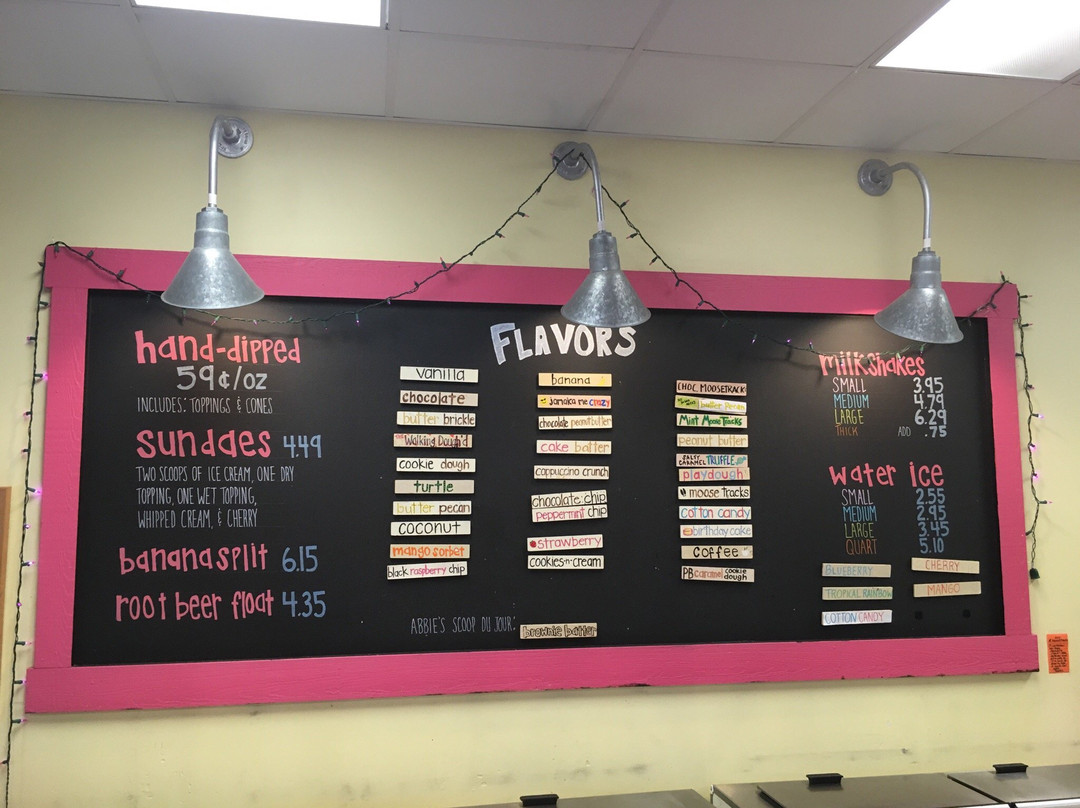 hand-dipped
59¢/oz
INCLUDES: TOPPINGS & CONES
sundaes 4.49
TWO SCOOPS OF ICE CREAM, ONE DRY
TOPPING, ONE WET TOPPING,
WHIPPED CREAM, & CHERRY
banana split 6.15
root beer float 4.35
FLAVORS
vanilla
chocolate
butter brickle
Walking Dough'd
cookie dough
turtle
butter pecan
coconut
mango sorbet
black raspberry chip
banana
Jamaica me crazy
chocolate peanutbutter
cake batter
cappuccino crunch
chocolate chip
peppermint chip
strawberry
cookies-n-cream
CHOC. MOOSETRACKS
butter pecan
Mint Moose Tracks
peanut butter
SALTY CARAMEL TRUFFLE
playdough
moose Tracks
cotton candy
birthday cake
coffee
PB caramel cookie dough
ABBIE'S SCOOP DU JOUR:
brownie batter
milkshakes
SMALL 3.95
MEDIUM 4.79
LARGE 6.29
THICK ADD .75
water ice
SMALL 2.55
MEDIUM 2.95
LARGE 3.45
QUART 5.10
BLUEBERRY
TROPICAL RAINBOW
COTTON CANDY
CHERRY
MANGO